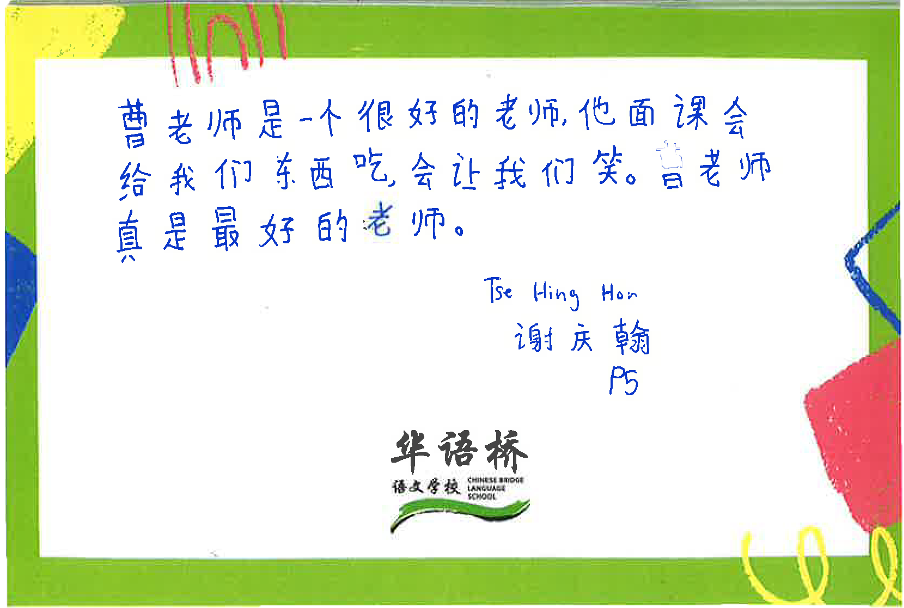 曹老师是一个很好的老师,他面课会
给我们东西吃,会让我们笑。曹老师
真是最好的老师。
Tse Hing Hon
谢庆翰
P5
华语桥
语文学校 CHINESE BRIDGE
LANGUAGE
SCHOOL